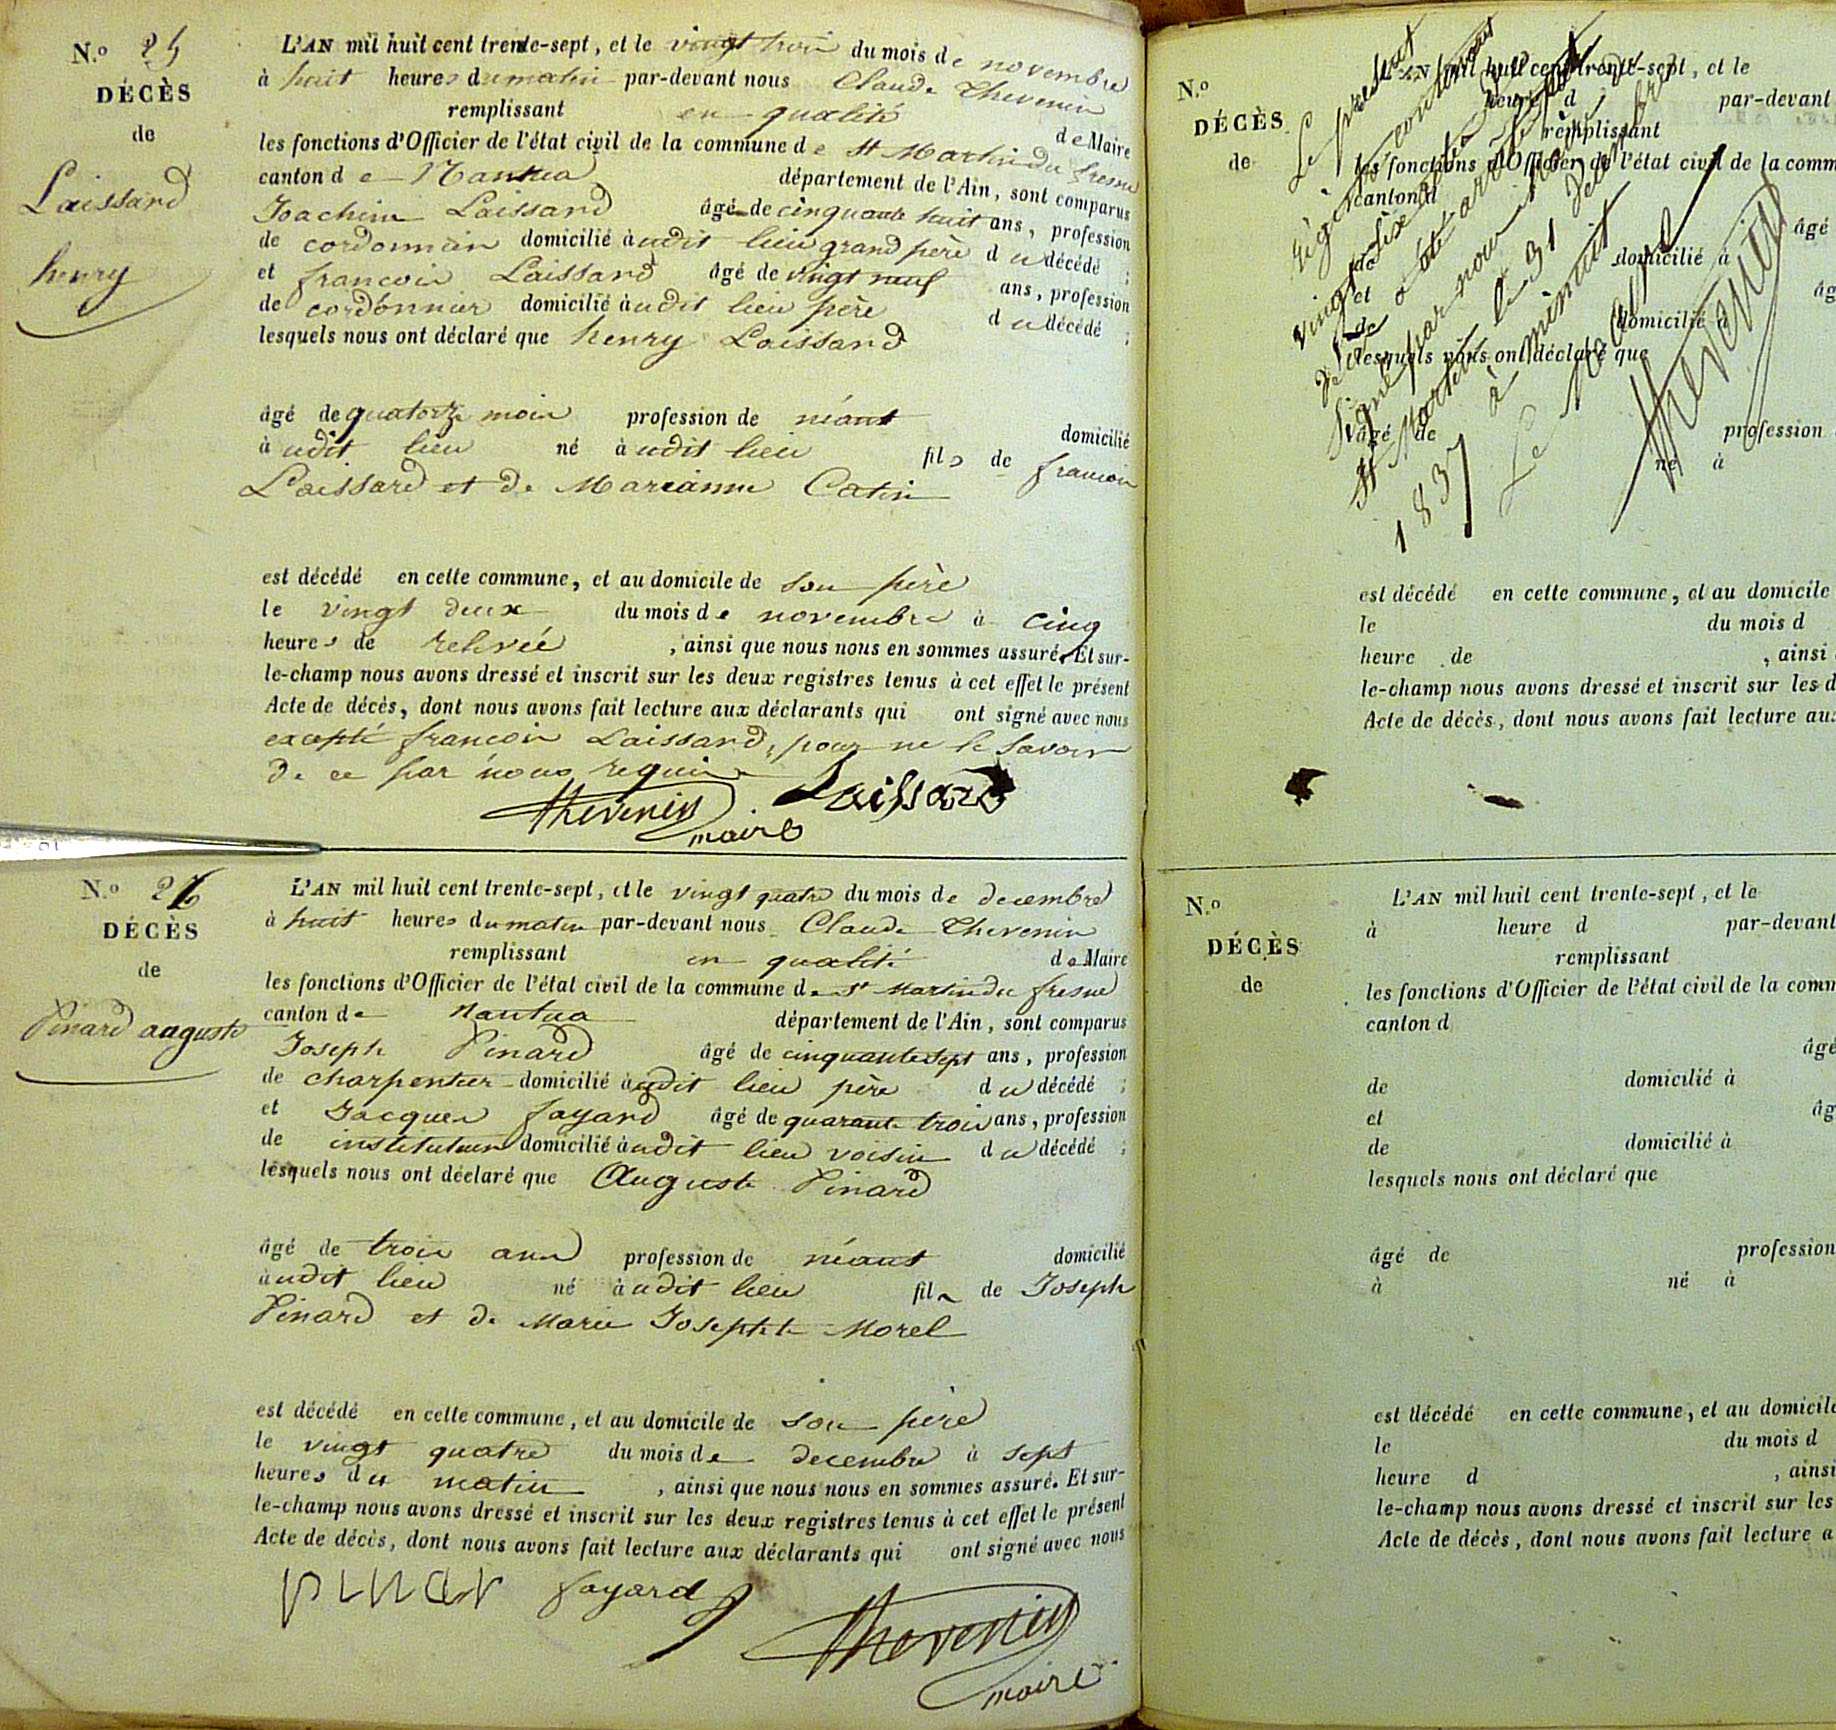 N.o 25
DÉCÈS
de
Laissard
henry
L'AN mil huit cent trente-sept, et le vingt trois du mois de novembre
à huit heures du matin par-devant nous Claude Thevenin
remplissant en qualité de Maire
les fonctions d'Officier de l'état civil de la commune de St Martin du fresne
canton de Nantua département de l'Ain, sont comparus
Joachim Laissard âgé de cinquante huit ans, profession
de cordonnier domicilié àudit lieu grand père du décédé ;
et francois Laissard âgé de vingt neuf ans, profession
de cordonnier domicilié àudit lieu père du décédé ;
lesquels nous ont déclaré que henry Laissard
âgé de quatorze mois profession de néant domicilié
àudit lieu né àudit lieu fils de francois
Laissard et de Marianne Catin
est décédé en cette commune, et au domicile de son père
le vingt deux du mois de novembre à cinq
heures de relevée , ainsi que nous nous en sommes assuré. Et sur-
le-champ nous avons dressé et inscrit sur les deux registres tenus à cet effet le présent
Acte de décès, dont nous avons fait lecture aux déclarants qui ont signé avec nous
excepté francois Laissard, pour ne le savoir
de ce par nous requis
Thevenin Laissard
maire
N.o 26
DÉCÈS
de
Pinard auguste
L'AN mil huit cent trente-sept, et le vingt quatre du mois de decembre
à huit heures du matin par-devant nous Claude Thevenin
remplissant en qualité de Maire
les fonctions d'Officier de l'état civil de la commune de St Martin du fresne
canton de Nantua département de l'Ain, sont comparus
Joseph Pinard âgé de cinquante sept ans, profession
de charpentier domicilié àudit lieu père du décédé ;
et Jacques fayard âgé de quarante trois ans, profession
de instituteur domicilié àudit lieu voisin du décédé ;
lesquels nous ont déclaré que Auguste Pinard
âgé de trois ans profession de néant domicilié
àudit lieu né àudit lieu fils de Joseph
Pinard et de Marie Josephte Morel
est décédé en cette commune, et au domicile de son père
le vingt quatre du mois de decembre à sept
heures du matin , ainsi que nous nous en sommes assuré. Et sur-
le-champ nous avons dressé et inscrit sur les deux registres tenus à cet effet le présent
Acte de décès, dont nous avons fait lecture aux déclarants qui ont signé avec nous
pinar fayard
Thevenin
maire
N.o
DÉCÈS
de
L'AN mil huit cent trente-sept, et le
heure d par-devant
remplissant
les fonctions d'Officier de l'état civil de la comm
canton d
âgé
de domicilié à
et âg
de domicilié à
lesquels nous ont déclaré que
âgé de profession
né à
Le présent
régistre contenant
vingt six
a été arrêté
signé par nous
St Martin le 31 decembre
1837 à minuit
Le Maire
Thevenin
est décédé en cette commune, et au domicile
le du mois d
heure de , ainsi
le-champ nous avons dressé et inscrit sur les d
Acte de décès, dont nous avons fait lecture au
N.o
DÉCÈS
de
L'AN mil huit cent trente-sept, et le
à heure d par-devant
remplissant
les fonctions d'Officier de l'état civil de la comm
canton d
âgé
de domicilié à
et âg
de domicilié à
lesquels nous ont déclaré que
âgé de profession
à né à
est décédé en cette commune, et au domicile
le du mois d
heure d , ainsi
le-champ nous avons dressé et inscrit sur les
Acte de décès, dont nous avons fait lecture a